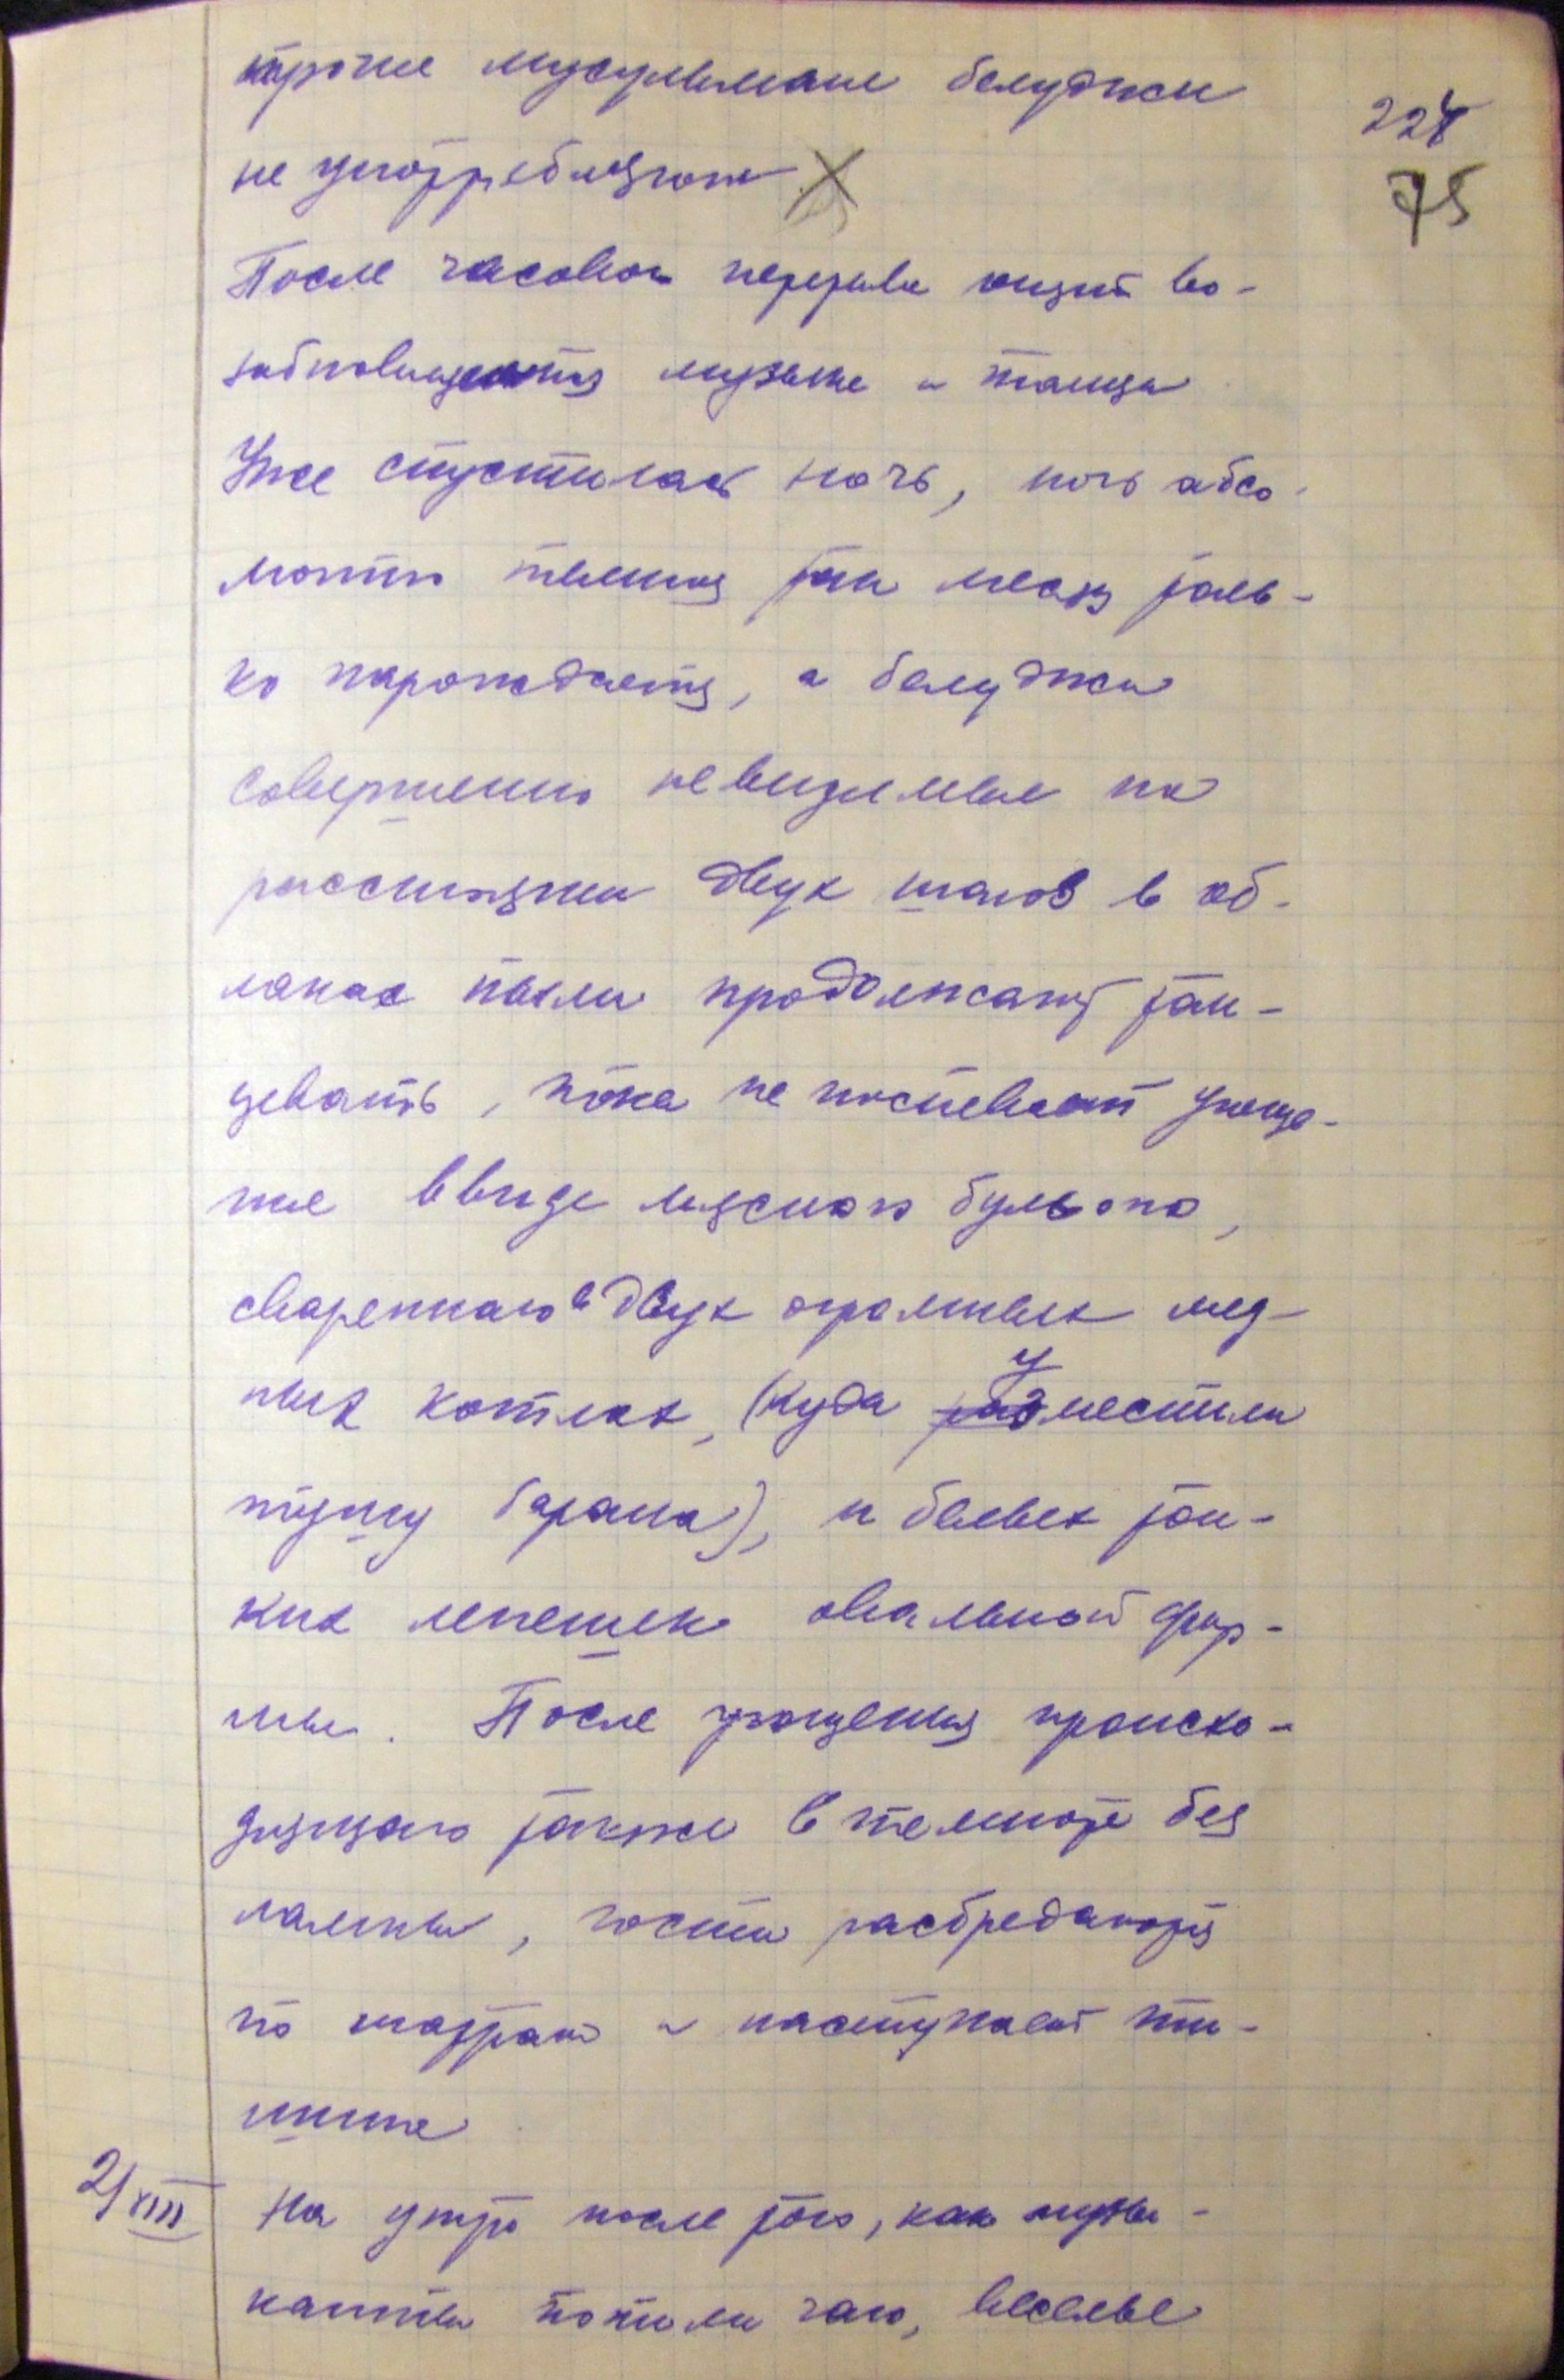 мусульмане белуджи
224
не употребляют
75
После часового перерыва опять во-
зобновляются музыка и танцы
Уже спустилась ночь, ночь абсо-
лютно темная так месяц толь-
ко нарождается, а белуджи
совершенно невидимые на
расстоянии двух шагов в об-
лаках пыли продолжают тан-
цевать, пока не поспевает угоще-
ние в виде мясного бульона,
сваренного в двух огромных мед-
ных котлах, (куда уместили
тушу барана), и белых тон-
ких лепешек овальной фор-
мы. После угощения происхо-
дящаго также в темноте без
лампы, гости разбредаются
по шатрам и наступает ти-
шина
2/VIII
На утро после того, как музы-
канты попили чаю, веселье